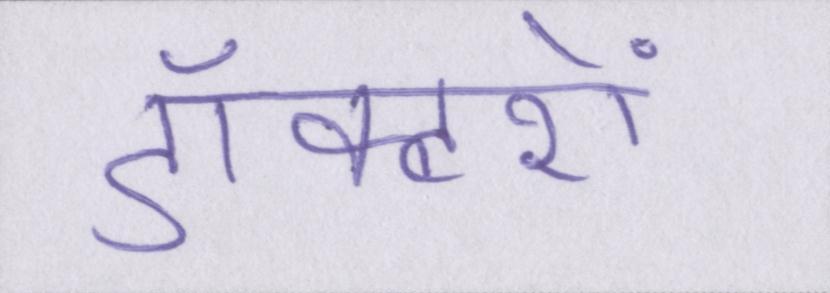 डॉक्टरों